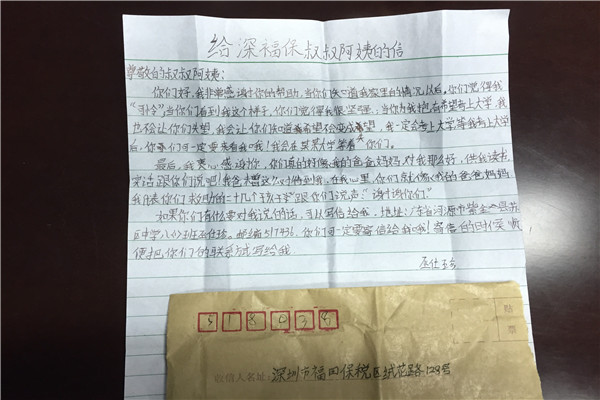 给深福保叔叔阿姨的信
尊敬的叔叔阿姨:
你们好,我非常感谢你的帮助,当你们知道我家里的情况以后,你们觉得我
当你们看到我这个样子,你们觉得我很坚强,当你为我抱有希望考上大学,我
也不会让你们失望,我会让你们知道希望不会变成失望,我一定会考上大学,等我考上大学
后,你们一定要来看我哦!我会在某某大学等着你们。
最后,我衷心感谢你,你们真的好像我的爸爸妈妈,对我那么好,供我读书,
实话跟你们说吧!我爸未曾这么对待到我,在我心里,你们就像我的爸爸妈妈,
我代表你们救助的二十几个孩子跟你们说声:“谢谢你们”
如果你们有什么要对我说的话,可以写信给我,地址:广东省河源市紫金县苏
区中学八(1)班 邮编517436,你们一定要寄信给我哦!寄信的时候,顺
便把你们的联系方式写给我
518038
贴
票
收信人名址:深圳市福田保税区绒花路128号